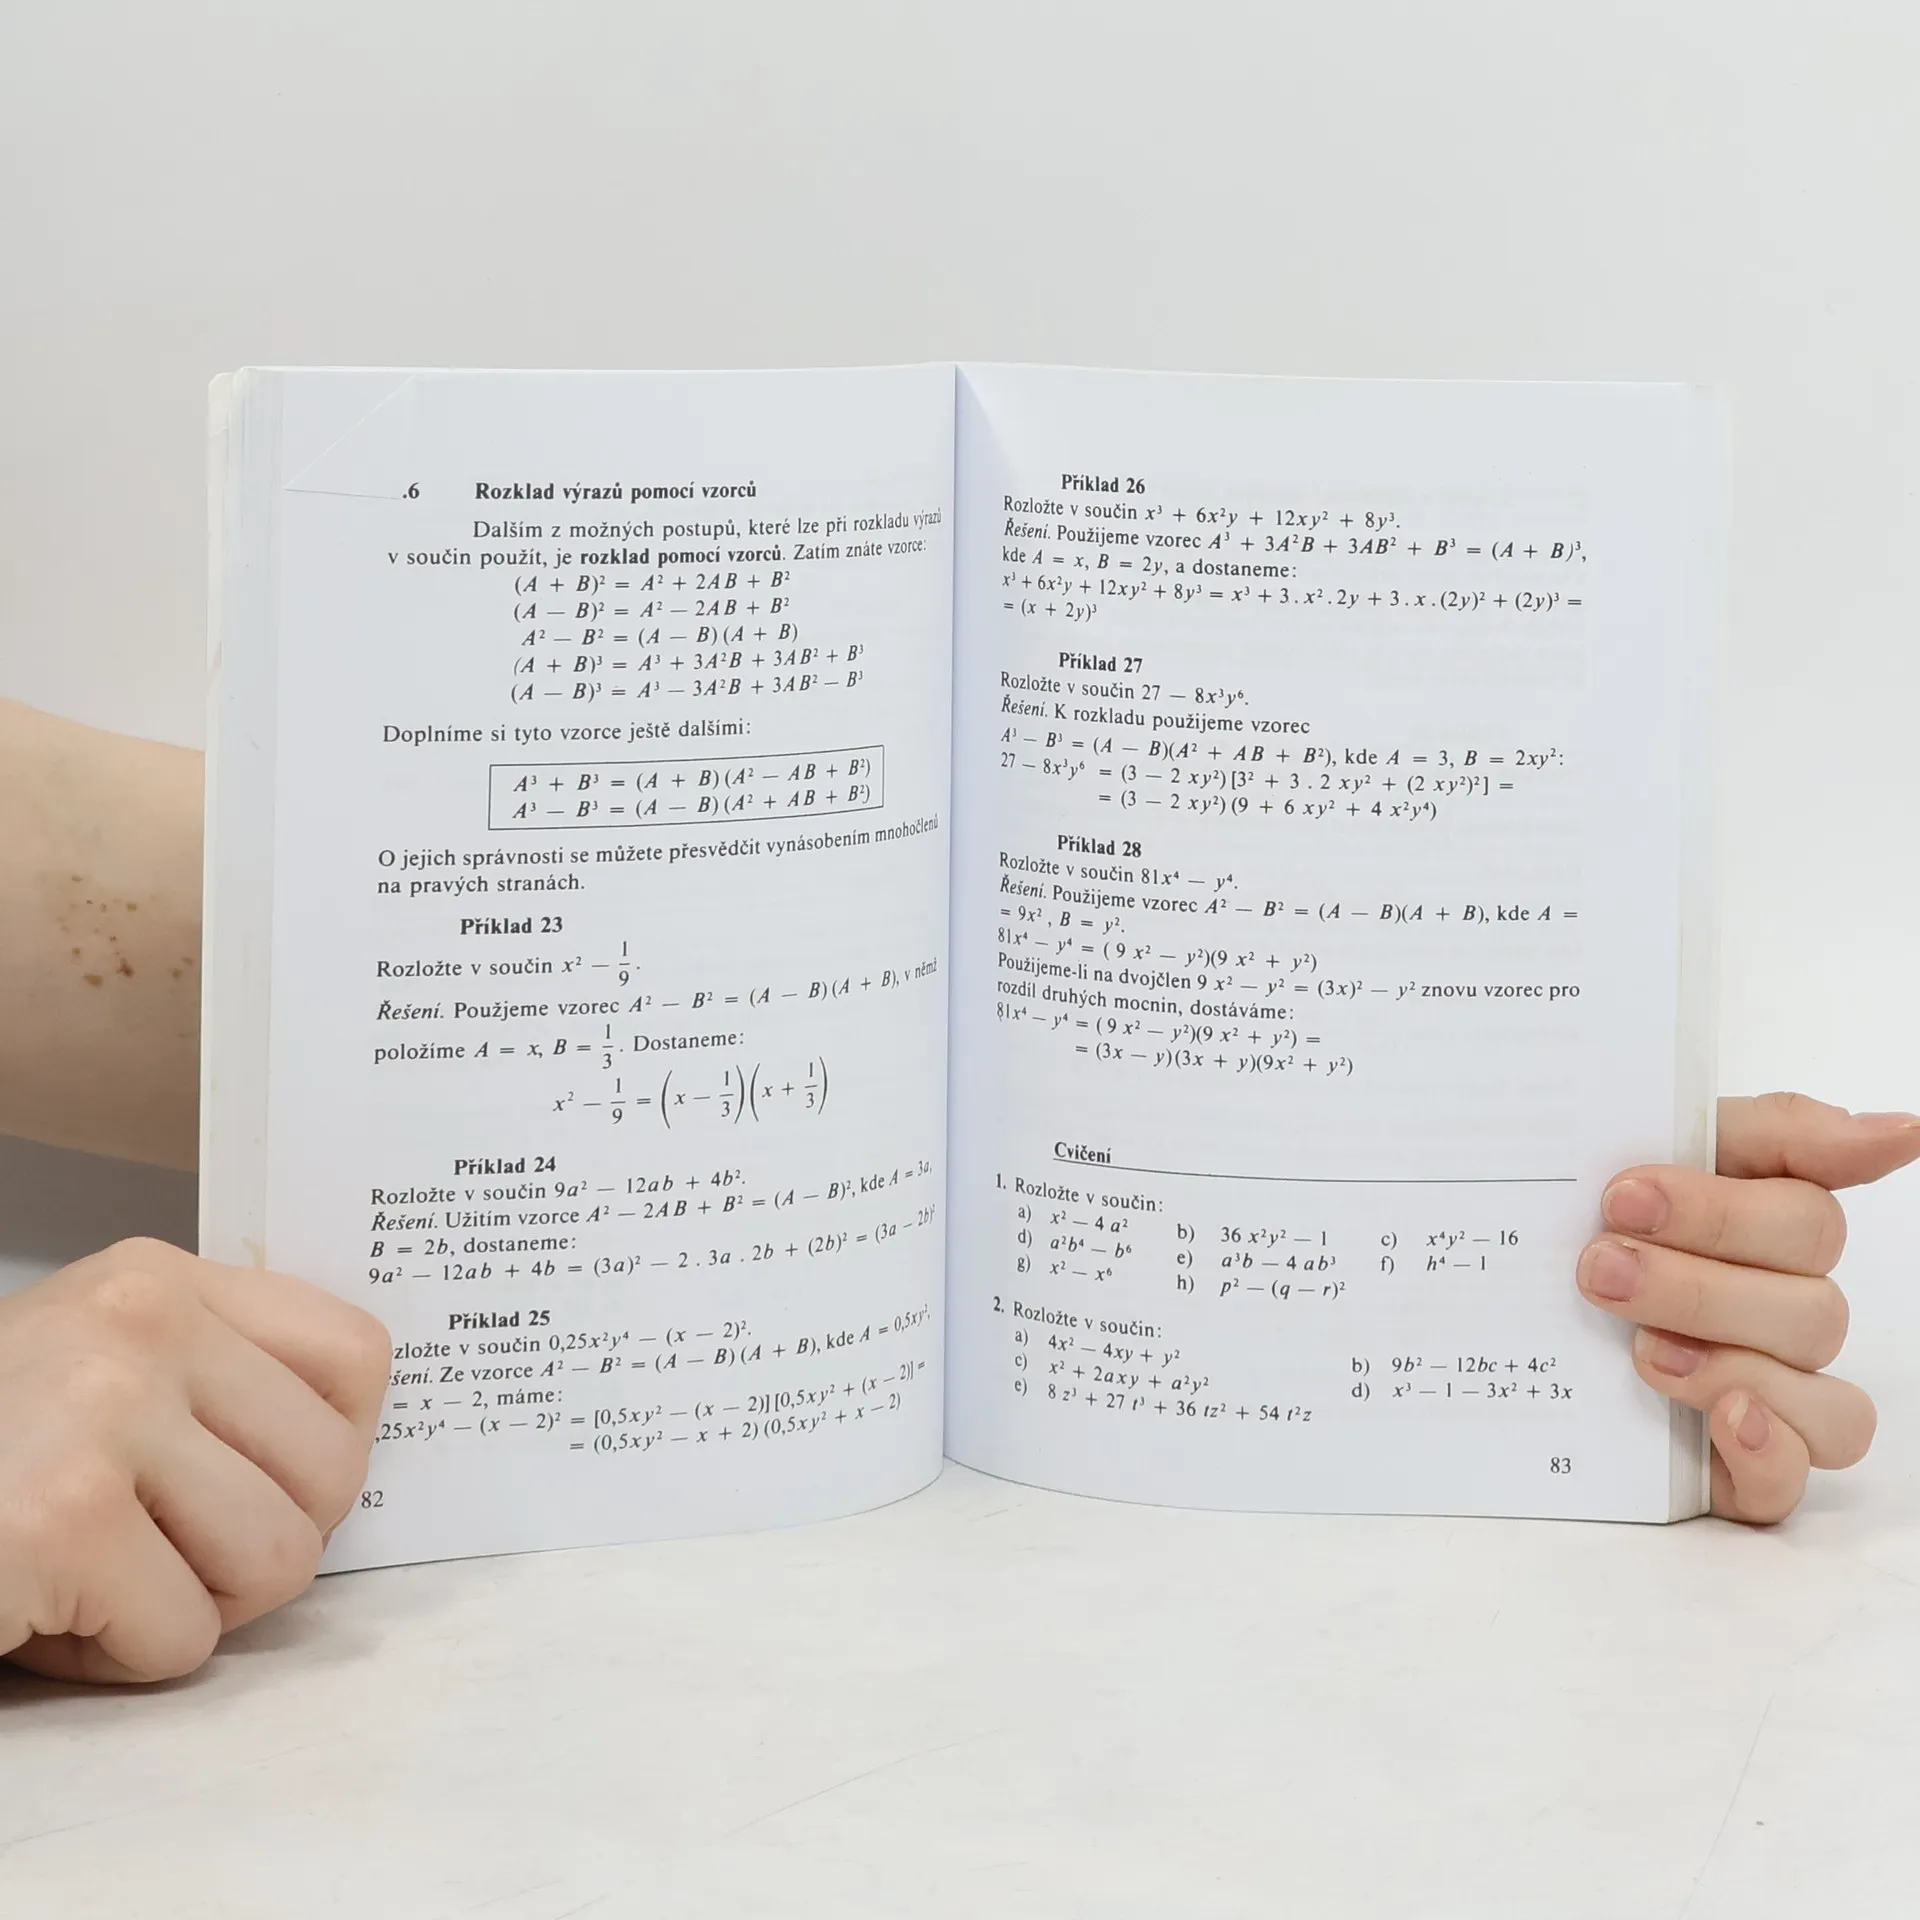 .6 Rozklad výrazů pomocí vzorců
Dalším z možných postupů, které lze při rozkladu výrazů
v součin použít, je rozklad pomocí vzorců. Zatím znáte vzorce:
(A + B)² = A² + 2AB + B²
(A — B)² = A² — 2AB + B²
A² — B² = (A — B)(A + B)
(A + B)³ = A³ + 3A²B + 3AB² + B³
(A — B)³ = A³ — 3A²B + 3AB² — B³
Doplníme si tyto vzorce ještě dalšími:
A³ + B³ = (A + B)(A² — AB + B²)
A³ — B³ = (A — B)(A² + AB + B²)
O jejich správnosti se můžete přesvědčit vynásobením mnohočlenů
na pravých stranách.
Příklad 23
Rozložte v součin x² — 1/9.
Řešení. Použjeme vzorec A² — B² = (A — B)(A + B), v němž
položíme A = x, B = 1/3. Dostaneme:
x² — 1/9 = (x — 1/3)(x + 1/3)
Příklad 24
Rozložte v součin 9a² — 12ab + 4b².
Řešení. Užitím vzorce A² — 2AB + B² = (A — B)², kde A = 3a,
B = 2b, dostaneme:
9a² — 12ab + 4b = (3a)² — 2 . 3a . 2b + (2b)² = (3a — 2b)²
Příklad 25
zložte v součin 0,25x²y⁴ — (x — 2)².
šení. Ze vzorce A² — B² = (A — B)(A + B), kde A = 0,5xy²,
= x — 2, máme:
,25x²y⁴ — (x — 2)² = [0,5xy² — (x — 2)][0,5xy² + (x — 2)] =
= (0,5xy² — x + 2)(0,5xy² + x — 2)
82
Příklad 26
Rozložte v součin x³ + 6x²y + 12xy² + 8y³.
Řešení. Použijeme vzorec A³ + 3A²B + 3AB² + B³ = (A + B)³,
kde A = x, B = 2y, a dostaneme:
x³ + 6x²y + 12xy² + 8y³ = x³ + 3 . x² . 2y + 3 . x . (2y)² + (2y)³ =
= (x + 2y)³
Příklad 27
Rozložte v součin 27 — 8x³y⁶.
Řešení. K rozkladu použijeme vzorec
A³ — B³ = (A — B)(A² + AB + B²), kde A = 3, B = 2xy²:
27 — 8x³y⁶ = (3 — 2 xy²)[3² + 3 . 2 xy² + (2 xy²)²] =
= (3 — 2 xy²)(9 + 6 xy² + 4 x²y⁴)
Příklad 28
Rozložte v součin 81x⁴ — y⁴.
Řešení. Použijeme vzorec A² — B² = (A — B)(A + B), kde A =
= 9x², B = y².
81x⁴ — y⁴ = (9 x² — y²)(9 x² + y²)
Použijeme-li na dvojčlen 9 x² — y² = (3x)² — y² znovu vzorec pro
rozdíl druhých mocnin, dostáváme:
81x⁴ — y⁴ = (9 x² — y²)(9 x² + y²) =
= (3x — y)(3x + y)(9x² + y²)
Cvičení
1. Rozložte v součin:
a) x² — 4 a² b) 36 x²y² — 1 c) x⁴y² — 16
d) a²b⁴ — b⁶ e) a³b — 4 ab³ f) h⁴ — 1
g) x² — x⁶ h) p² — (q — r)²
2. Rozložte v součin:
a) 4x² — 4xy + y² b) 9b² — 12bc + 4c²
c) x² + 2axy + a²y² d) x³ — 1 — 3x² + 3x
e) 8 z³ + 27 t³ + 36 tz² + 54 t²z
83